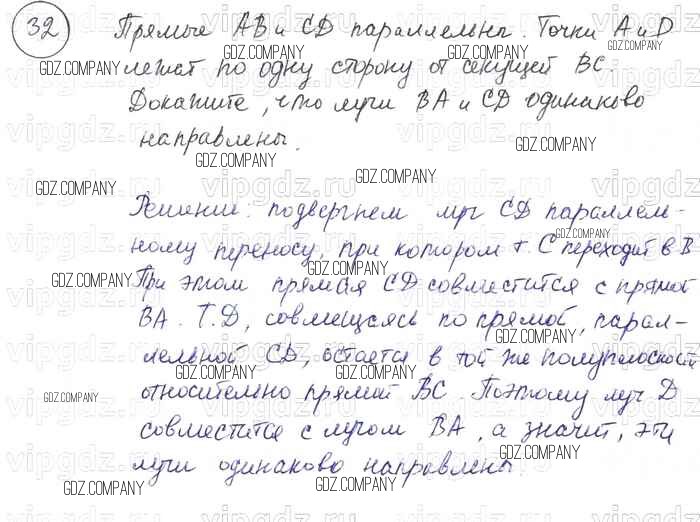 32 Прямые АВ и CD параллельны. Точки А и D
лежат по одну сторону от секущей ВС.
Докажите, что лучи ВА и CD одинаково
направлены.
Решение: подвергнем луч CD параллель-
ному переносу, при котором т. С переходит в В
При этом прямая CD совместится с прямой
ВА. Т. D, совмещаясь по прямой, парал-
лельной CD, остается в той же полуплоскости
относительно прямой ВС. Поэтому луч D
совместится с лучом ВА, а значит, эти
лучи одинаково направлены.
GDZ.COMPANY
vipgdz.ru